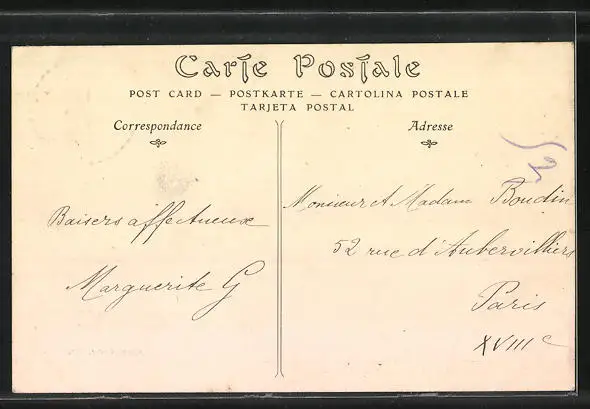 Carte Postale
POST CARD — POSTKARTE — CARTOLINA POSTALE
TARJETA POSTAL
Correspondance
Baisers affectueux
Marguerite G
Adresse
52
Monsieur et Madam Boudin
52 rue d'Aubervilliers
Paris
XVIIIe